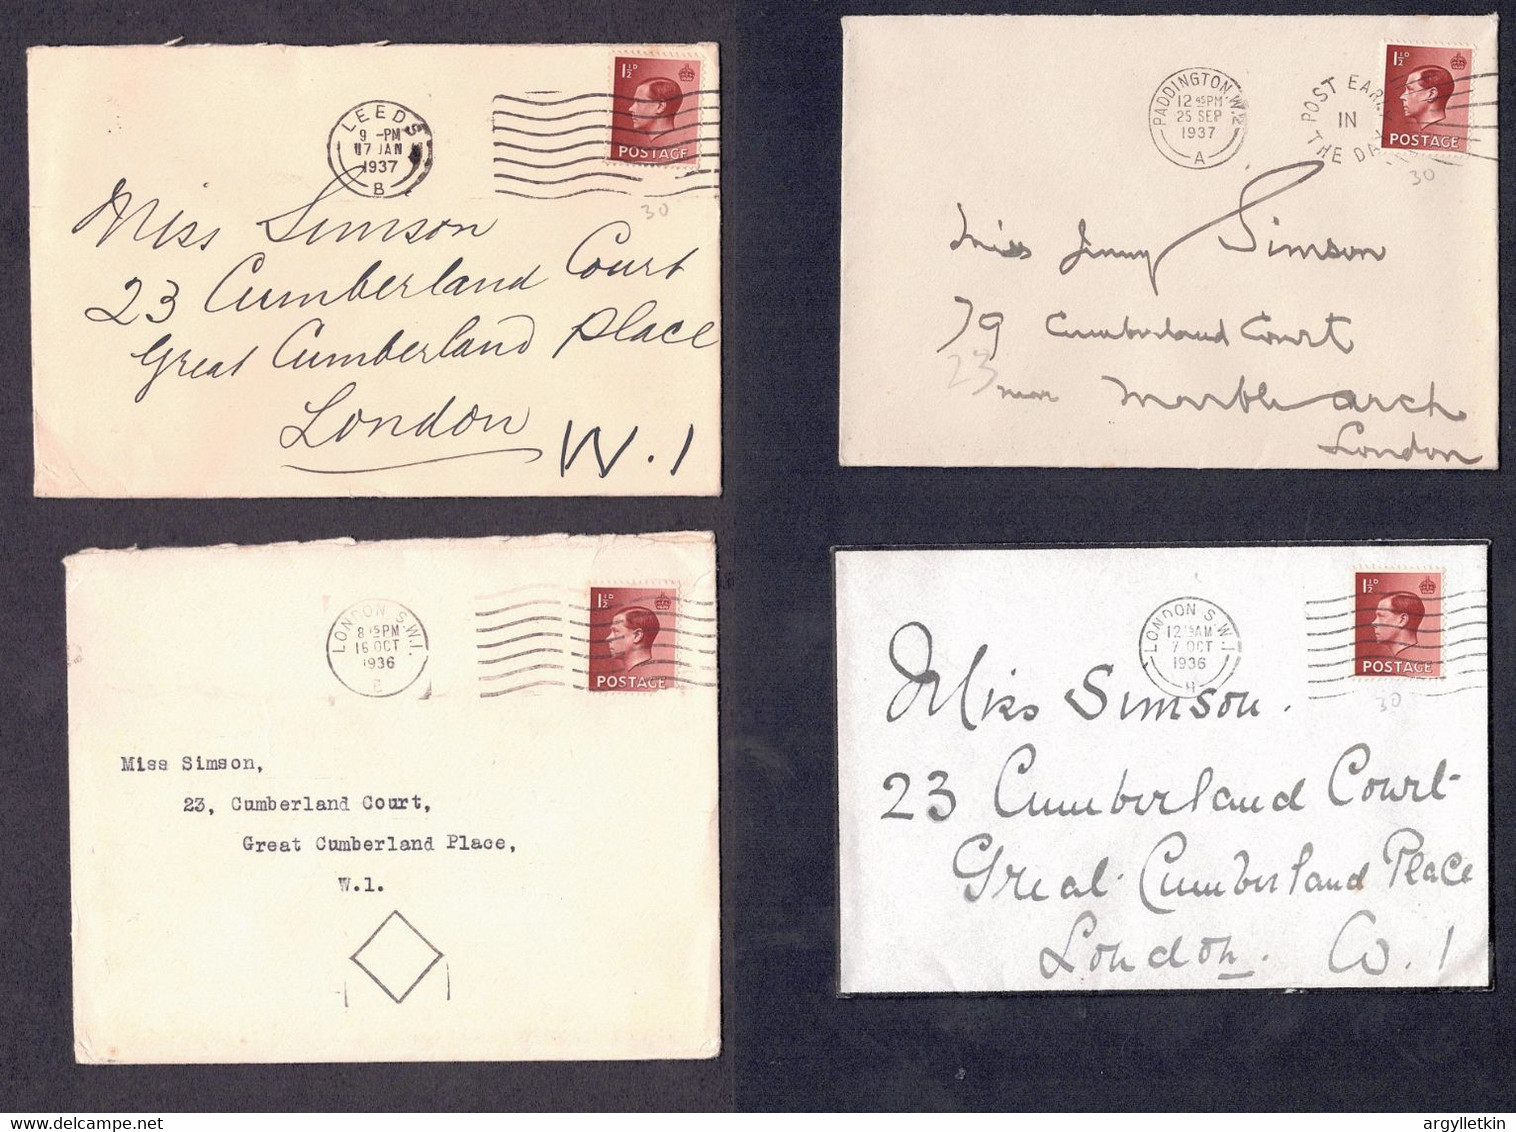 LEEDS
9 -PM
17 JAN
1937
B
1½D
POSTAGE
30
Miss Simson
23 Cumberland Court
Great Cumberland Place
London
W.1
PADDINGTON.W.2
12 45PM
25 SEP
1937
A
POST EARLY
IN
THE DAY
1½D
POSTAGE
30
Miss Jenny Simson
79 Cumberland Court
23
near Marble Arch
London
LONDON S.W.1.
8 15PM
16 OCT
1936
1½D
POSTAGE
Miss Simson,
23, Cumberland Court,
Great Cumberland Place,
W.1.
LONDON S.W.1
12 15AM
7 OCT
1936
1½D
POSTAGE
30
Miss Simson.
23 Cumberland Court
Great Cumberland Place
London. W.1
argylletkin